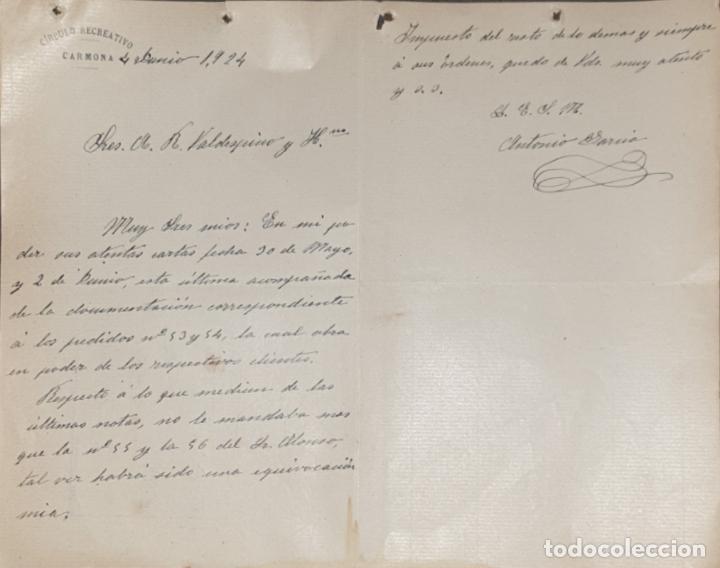 CÍRCULO RECREATIVO
CARMONA
4 Junio 1,924
Sres. A. R. Valdespino y H.nos
Muy Sres mios: En mi po
der sus atentas cartas fecha 30 de Mayo,
y 2 de Junio, esta última acompañada
de la documentación correspondiente
á los pedidos nº 53 y 54, la cual obra
en poder de los respectivos clientes.
Respecto á lo que me dicen de las
últimas notas, no le mandaba mas
que la nº 55 y la 56 del Sr. Alonso,
tal vez habrá sido una equivocación
mia.
Impuesto del resto de lo demas y siempre
á sus órdenes, quedo de Vds. muy atento
y s. s.
Q. E. S. M.
Antonio Garcia
todocoleccion.net